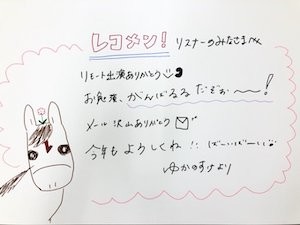 レコメン! リスナーのみなさまへ
リモート出演ありがとう
お勉強、がんばるるだぞぉ〜〜!
メール沢山ありがとう
今年もよろしくね!! ばーいばーい
ゆかのすけより